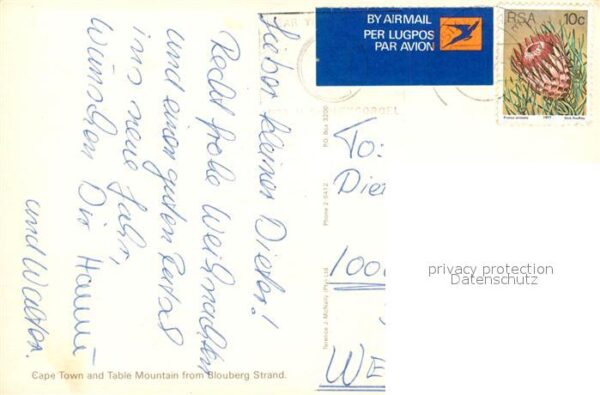 BY AIRMAIL
PER LUGPOS
PAR AVION
RSA 10c
1977
Lieber kleiner Dieter!
Recht frohe Weihnachten
und einen guten Rutsch
ins neue Jahr,
Wünschen Dir Hanni
und Walter.
To:
Die
100
WE
PO Box 3200
Phone 2-5412
Terence J McNally (Pty) Ltd
Cape Town and Table Mountain from Blouberg Strand.
privacy protection
Datenschutz